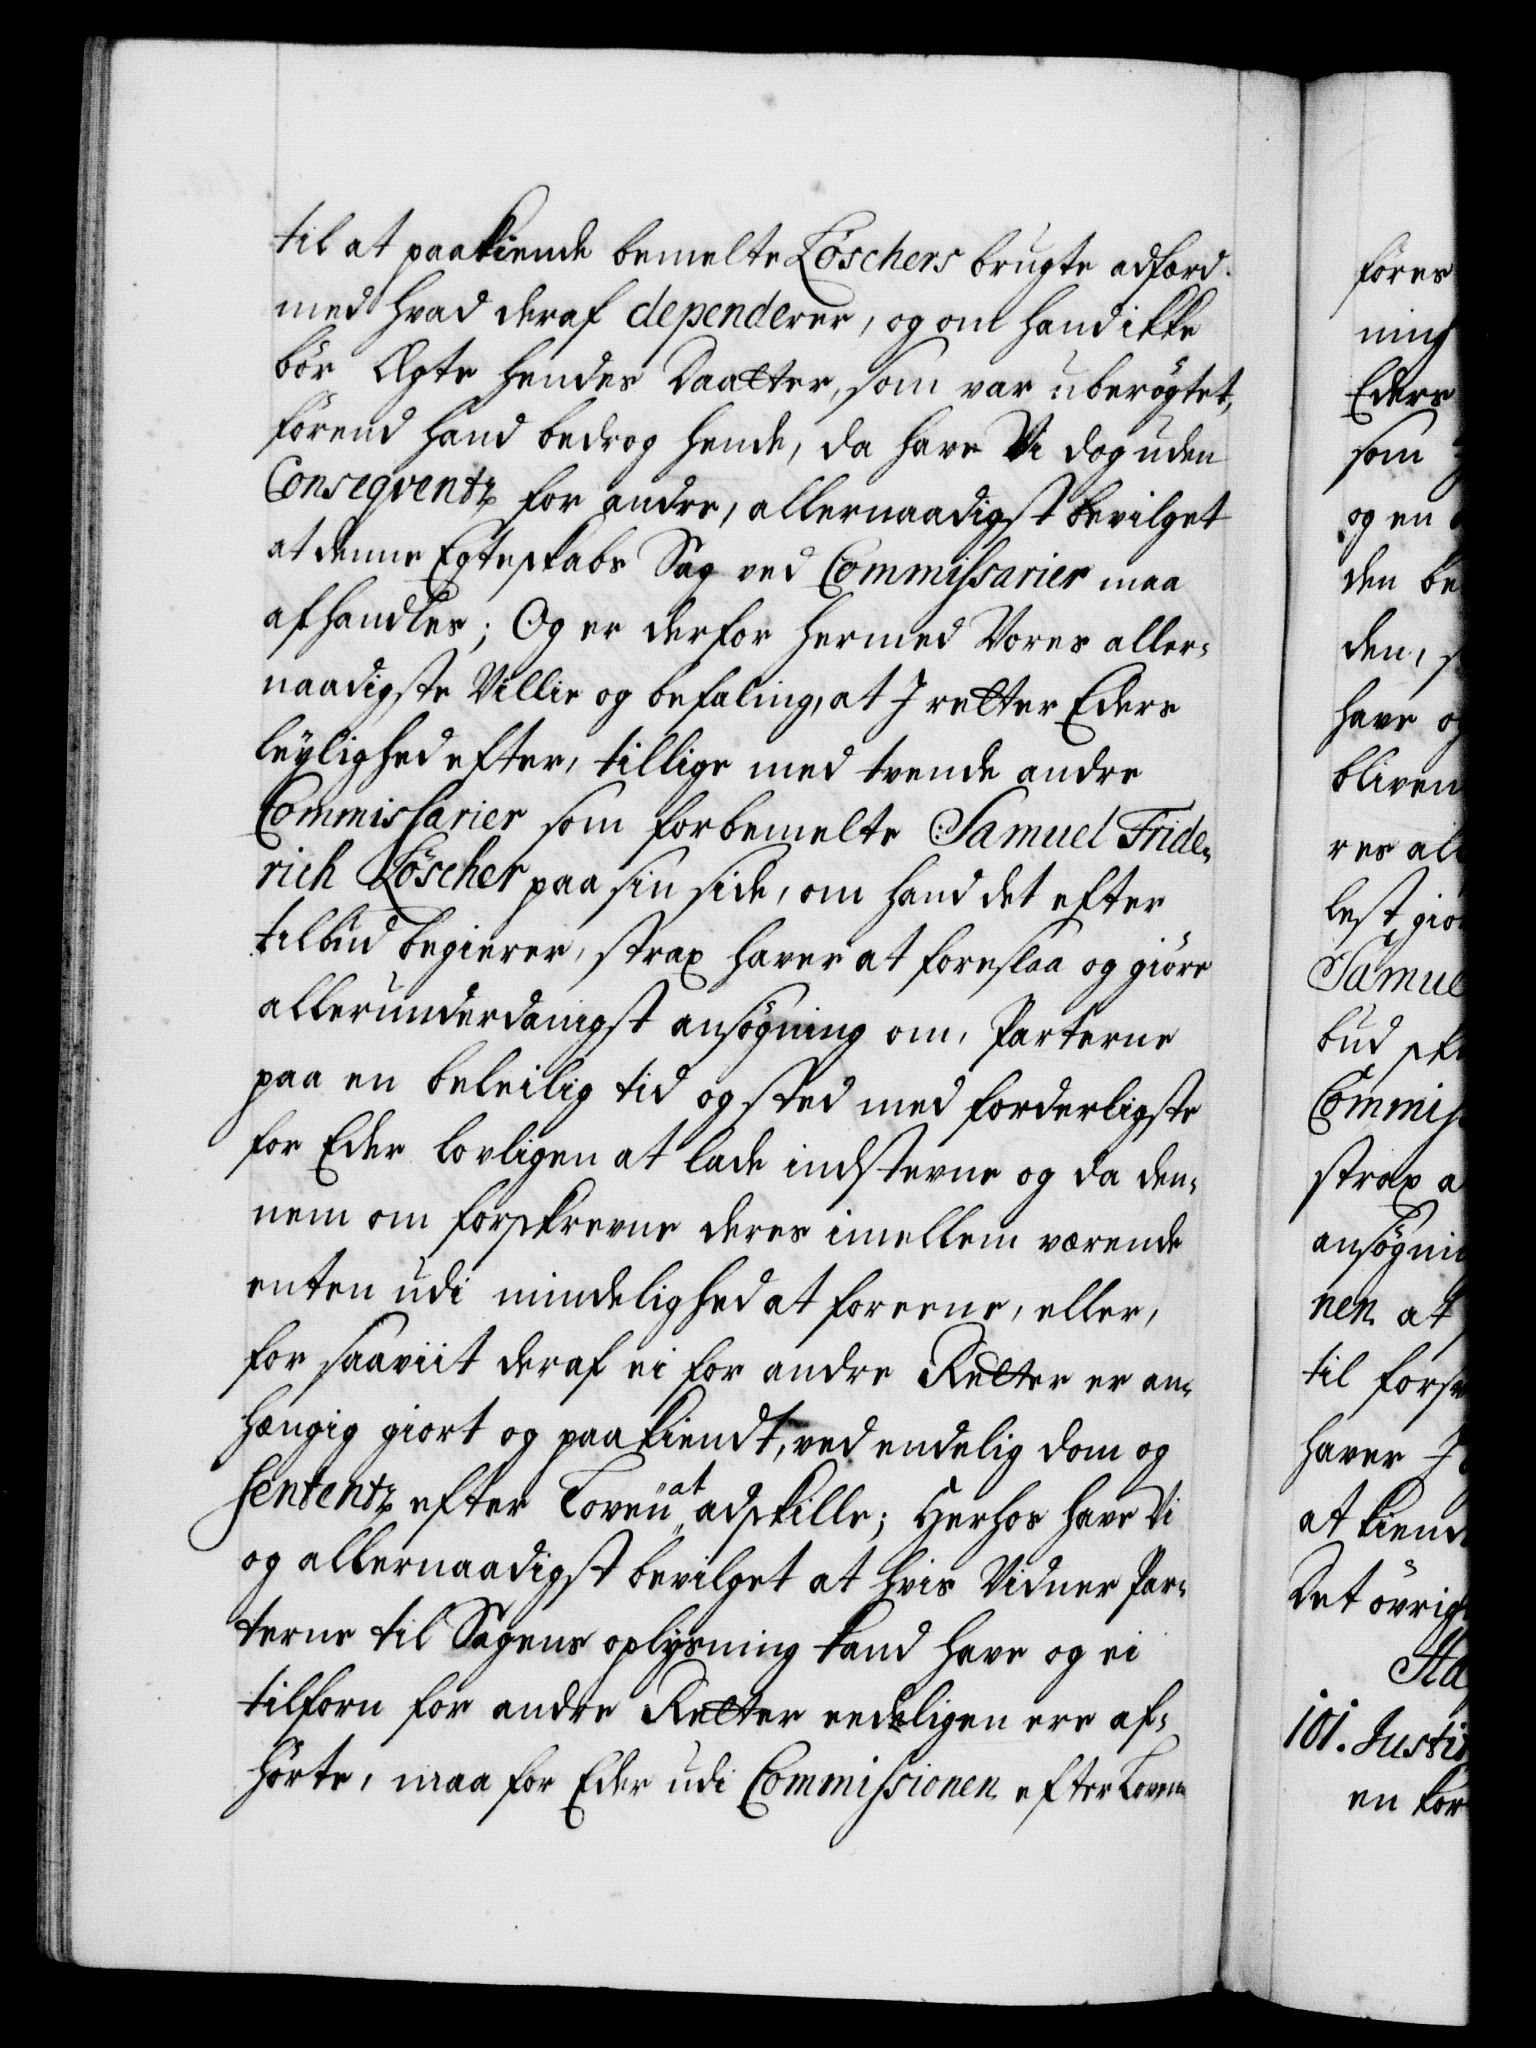 til at paakiende bemelte Löschers brugte adfærd
med hvad deraf dependerer, og om hand ikke
bör Ægte hendes Daatter, som var uberögtet,
förend hand bedrog hende, da have Vi dog uden
Conseqventz for andre, allernaadigst bevilget
at denne Egteskabs Sag ved Commissarier maa
afhandles; Og er derfor hermed Vores aller-
naadigste Villie og befaling, at I retter Eders
leylighed efter, tillige med tvende andre
Commissarier som forbemelte Samuel Fride-
rich Löscher paa sin side, om hand det efter
tilbud begierer, strax haver at foreslaa og giöre
allerunderdanigst ansögning om, Parterne
paa en beleilig tid og sted med forderligste
for Eder lovligen at lade indstevne og da den-
nem om forskrevne deres imellem værende
enten udi mindelighed at foreene, eller,
for saaviit deraf ei for andre Retter er an-
hængig giort og paakiendt, ved endelig dom og
Sententz efter Loven at adskille; Herhos have Vi
og allernaadigst bevilget at hvis Vidner Par-
terne til Sagens oplysning kand have og ei
tilforn for andre Retter eedeligen ere af-
hörte, maa for Eder udi Commissionen efter Loven
föres
ning
Eders
som
og en
den be
den, s
have og
bliven
res all
lest gio
Samue
bud sk
Commis
strax a
ansögni
nen at
til fors
haver I
at kiend
Det övrig
101. Justi
en for